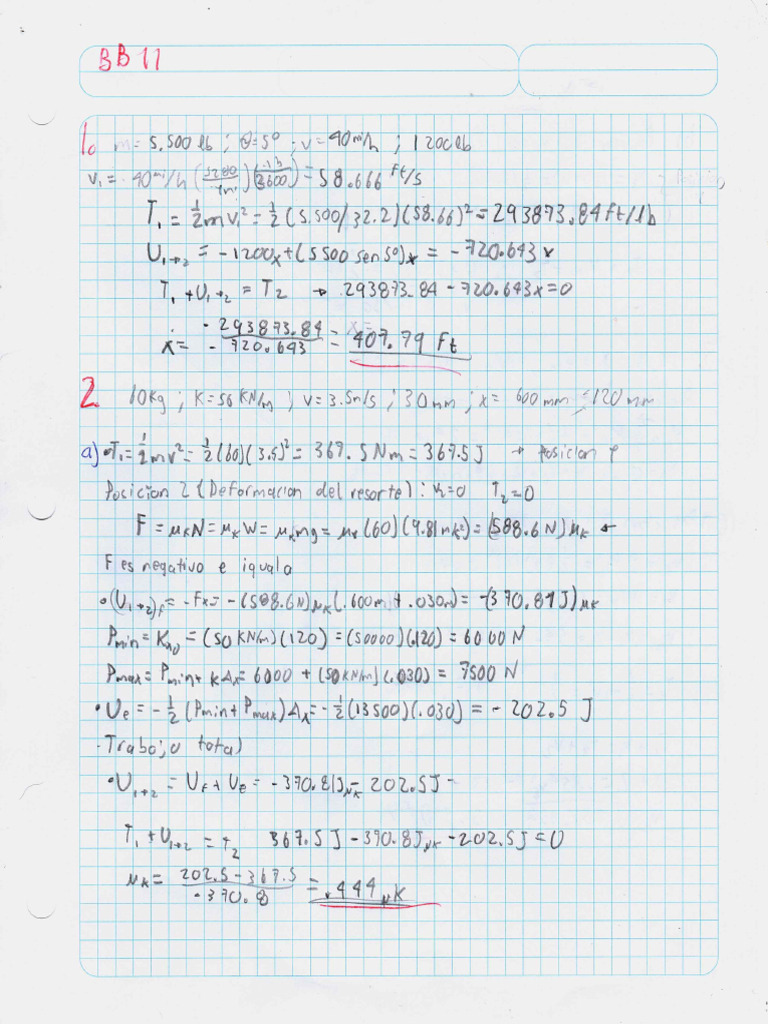 BB 11
1. m = 5,500 lb ; θ=5° ; v=40 mi/h ; 1200 lb
v₁ = 40 mi/h (5280/1mi)(1h/3600) = 58.666 ft/s
T₁ = ½mv₁² = ½(5.500/32.2)(58.66)² = 293873.84 ft/lb
U₁→₂ = -1200x + (5500 sen 5°)x = -720.643x
T₁ + U₁→₂ = T₂ → 293873.84 - 720.643x = 0
x = -293873.84/-720.643 = 407.79 Ft
2. 10Kg ; K=50 KN/m ; v=3.5m/s ; 30mm ; x= 600mm 120 mm
a) •T₁ = ½mv² = ½(60)(3.5)² = 367.5 Nm = 367.5 J → Posicion 1
Posicion 2 (Deformacion del resorte) : =0 T₂=0
F = μₖN = μₖW = μₖmg = μₖ(60)(9.81m/s²) = (588.6 N)μₖ ←
F es negativo e iguala
•(U₁→₂)f = -Fx = -(588.6N)μₖ(.600m + .030m) = -(370.81J)μₖ
Pmin = Kx₀ = (50KN/m)(120) = (50000)(.120) = 6000 N
Pmax = Pmin + KΔx = 6000 + (50KN/m)(.030) = 7500 N
•Ue = -½(Pmin + Pmax)Δx = -½(13500)(.030) = -202.5 J
·Trabajo total
•U₁→₂ = Uf + Ue = -370.81Jμₖ - 202.5J
T₁ + U₁→₂ = T₂ 367.5J - 370.8Jμₖ - 202.5J = 0
μₖ = 202.5 - 367.5/-370.8 = .444 μK